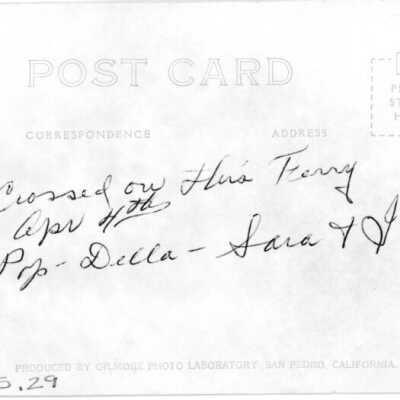 POST CARD
CORRESPONDENCE
ADDRESS
Crossed on this Ferry
Apr 4th
Pop - Della - Sara & I
PRODUCED BY GILMORE PHOTO LABORATORY, SAN PEDRO, CALIFORNIA.
5.29